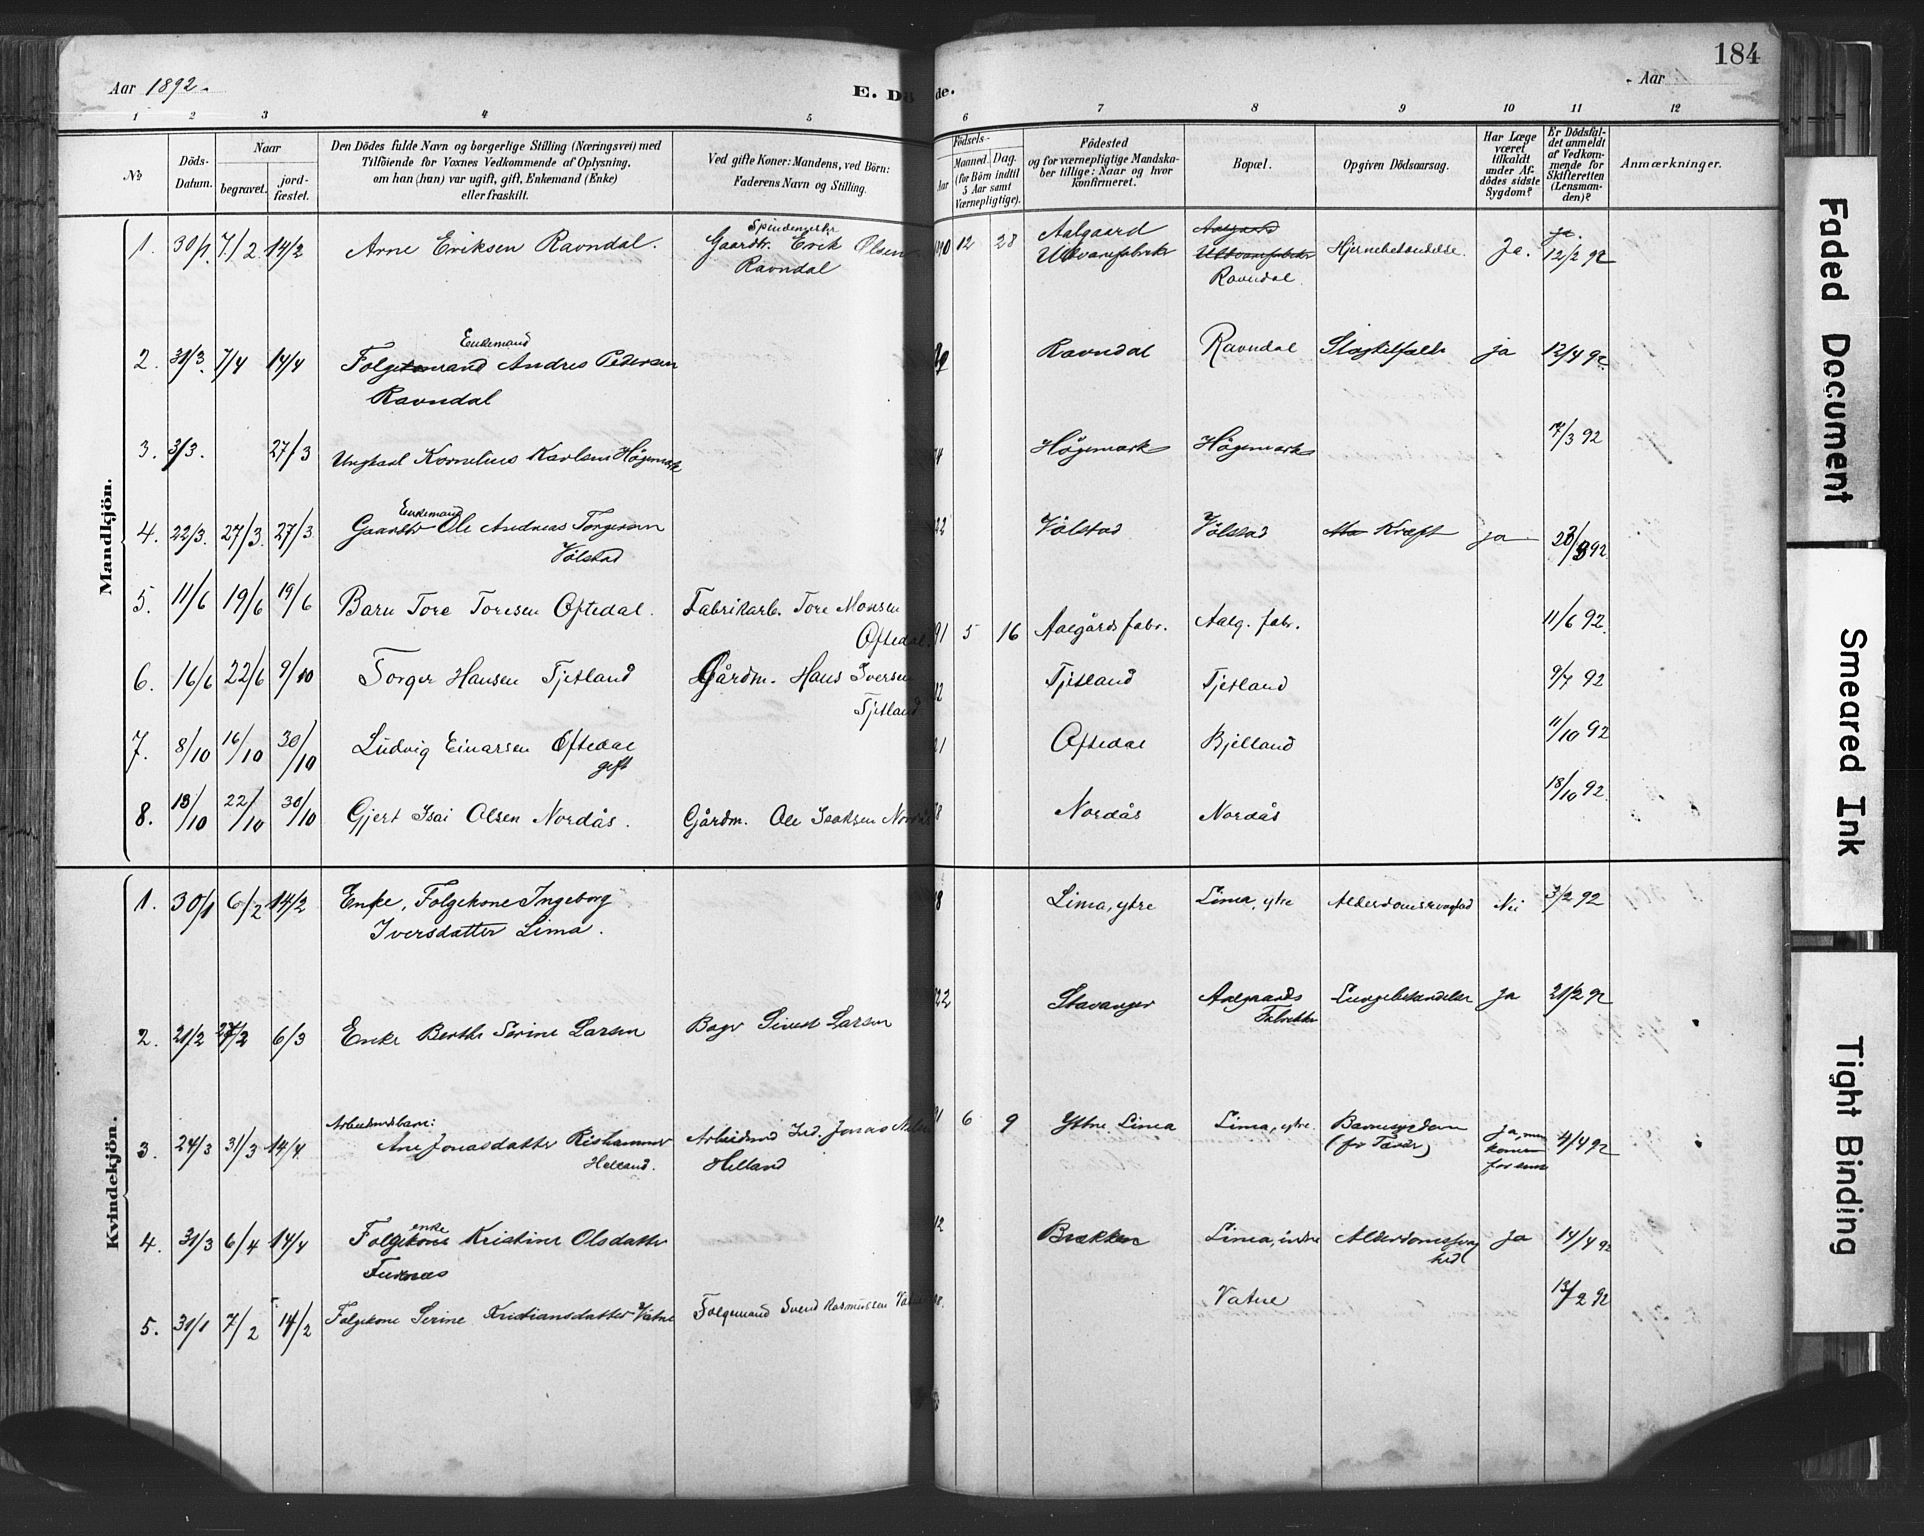 184
Aar 1892.
E. Dö
de.
Aar
1 2 3 4 5 6 7 8 9 10 11 12
No
Döds-Datum.
Naar
begravet.
jord-fæstet.
Den Dödes fulde Navn og borgerlige Stilling (Næringsvei) med
Tilföiende for Voxnes Vedkommende af Oplysning,
om han (hun) var ugift, gift, Enkemand (Enke)
eller fraskilt.
Ved gifte Koner: Mandens, ved Börn:
Faderens Navn og Stilling.
Födsels-
Aar
Maaned. Dag.
(for Börn indtil
5 Aar samt
Værnepligtige).
Födested
og for værnepligtige Mandska-
ber tillige: Naar og hvor
konfirmeret.
Bopæl.
Opgiven Dödsaarsag.
Har Læge
været
tilkaldt
under Af-
dödes sidste
Sygdom?
Er Dödsfal-
det anmeldt
af Vedkom-
mende for
Skifteretten
(Lensman-
den)?
Anmærkninger.
Mandkjön.
1. 30/1. 7/2 14/2 Arne Eriksen Ravndal. Gaardbr. Erik Olsen 90 12 28 Aalgaard Ja. 12/2 92
Ravndal Uldvarefabrik Uldvarefabrik Hjernebetændelse.
Ravndal
Enkemand
2. 31/3. 7/4 14/4 Folgemand Andres Pedersen Ravndal Ravndal Slagtilfælde ja 12/4 92
Ravndal
3. 3/3. 27/3 Ungkarl Kornelius Karlsen Høgemark Høgemark Høgemark 7/3 92
Enkemand
4. 22/3. 27/3. 27/3 Gaardbr Ole Andreas Torgersen 22 Vølstad Vølstad Kræft ja 92
Vølstad
5. 11/6 19/6 19/6 Barn Tore Toresen Oftedal. Fabrikarb. Tore Monsen
Oftedal. 91 5 16 Aalgårds fabr. Aalg. fabr. 11/6 92.
6. 16/6 22/6 9/10 Torger Hansen Tjetland Gårdm. Hans Iversen
Tjetland 12 Tjetland Tjetland 9/7 92
7. 8/10 16/10 30/10 Ludvig Einarsen Oftedal 21 Oftedal Bjelland 11/10 92
gift
8. 13/10 22/10 30/10 Gjert Isai Olsen Nordås. Gårdm. Ole Isaksen Nordås 8 Nordås Nordås 18/10 92.
Kvindekjön.
1. 30/1 6/2 14/2 Enke, Folgekone Ingeborg 8 Lima, ytre Lima, ytre Nei 3/2 92
Iversdatter Lima.
2. 21/2 27/2 6/3 Enke Berthe Serine Larsen Bager Sivert Larsen 22 Stavanger Aalgaards Lungebetændelse Ja 21/2 92
Fabrikker
Arbeidmdsbarn:
3. 24/3 31/3 14/4 Ane Jonasdatter Rishammer Arbeidmd Ind. Jonas 91 6 9 Ytre Lima Lima, ytre Barnesygdom ja, men 4/4 92
Helland. Helland
4. 31/3 6/4 14/4 Folgeenke Kristine Olsdatter 12 Brækken Lima, indre Alderdomssvag Ja 14/4 92
Furenes hed
5. 31/1 7/2 14/2 Folgekone Serine Kristiansdatter Vatne Folgemand Svend Rasmussen Vatne Vatne 13/2 92
Faded Document
Smeared Ink
Tight Binding